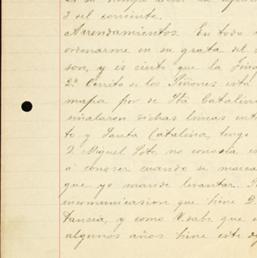 3 del corriente.
Arrendamientos. En todo
ordenarme en su grata del
son, y es cierto que la
2º Cerrito de los Piñones está
mapa por de Sta Catalina
señalaron dichas lineas
to y Santa Catalina, tengo
D Miguel Soto, no consta
á conocer cuando se
que yo mande levantar.
incomunicasion que tiene D
tancia, y como V. sabe que
algunos años tiene este